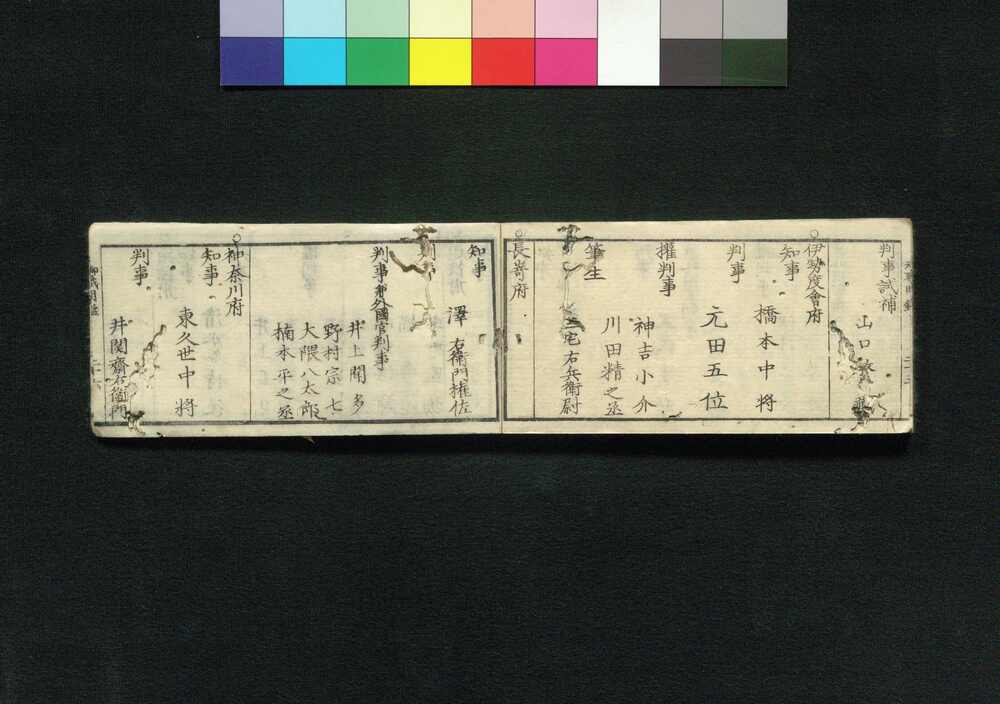 判事試補
山口
○伊勢度會府
知事
橋本中将
判事
元田五位
權判事
神吉小介
川田精之丞
筆生
三宅右兵衛尉
○長崎府
知事
澤右衛門權佐
判事
判事兼外國官判事
井上聞多
野村宗七
大隈八太郎
楠本平之丞
○神奈川府
知事
東久世中将
判事
井関齋右衛門